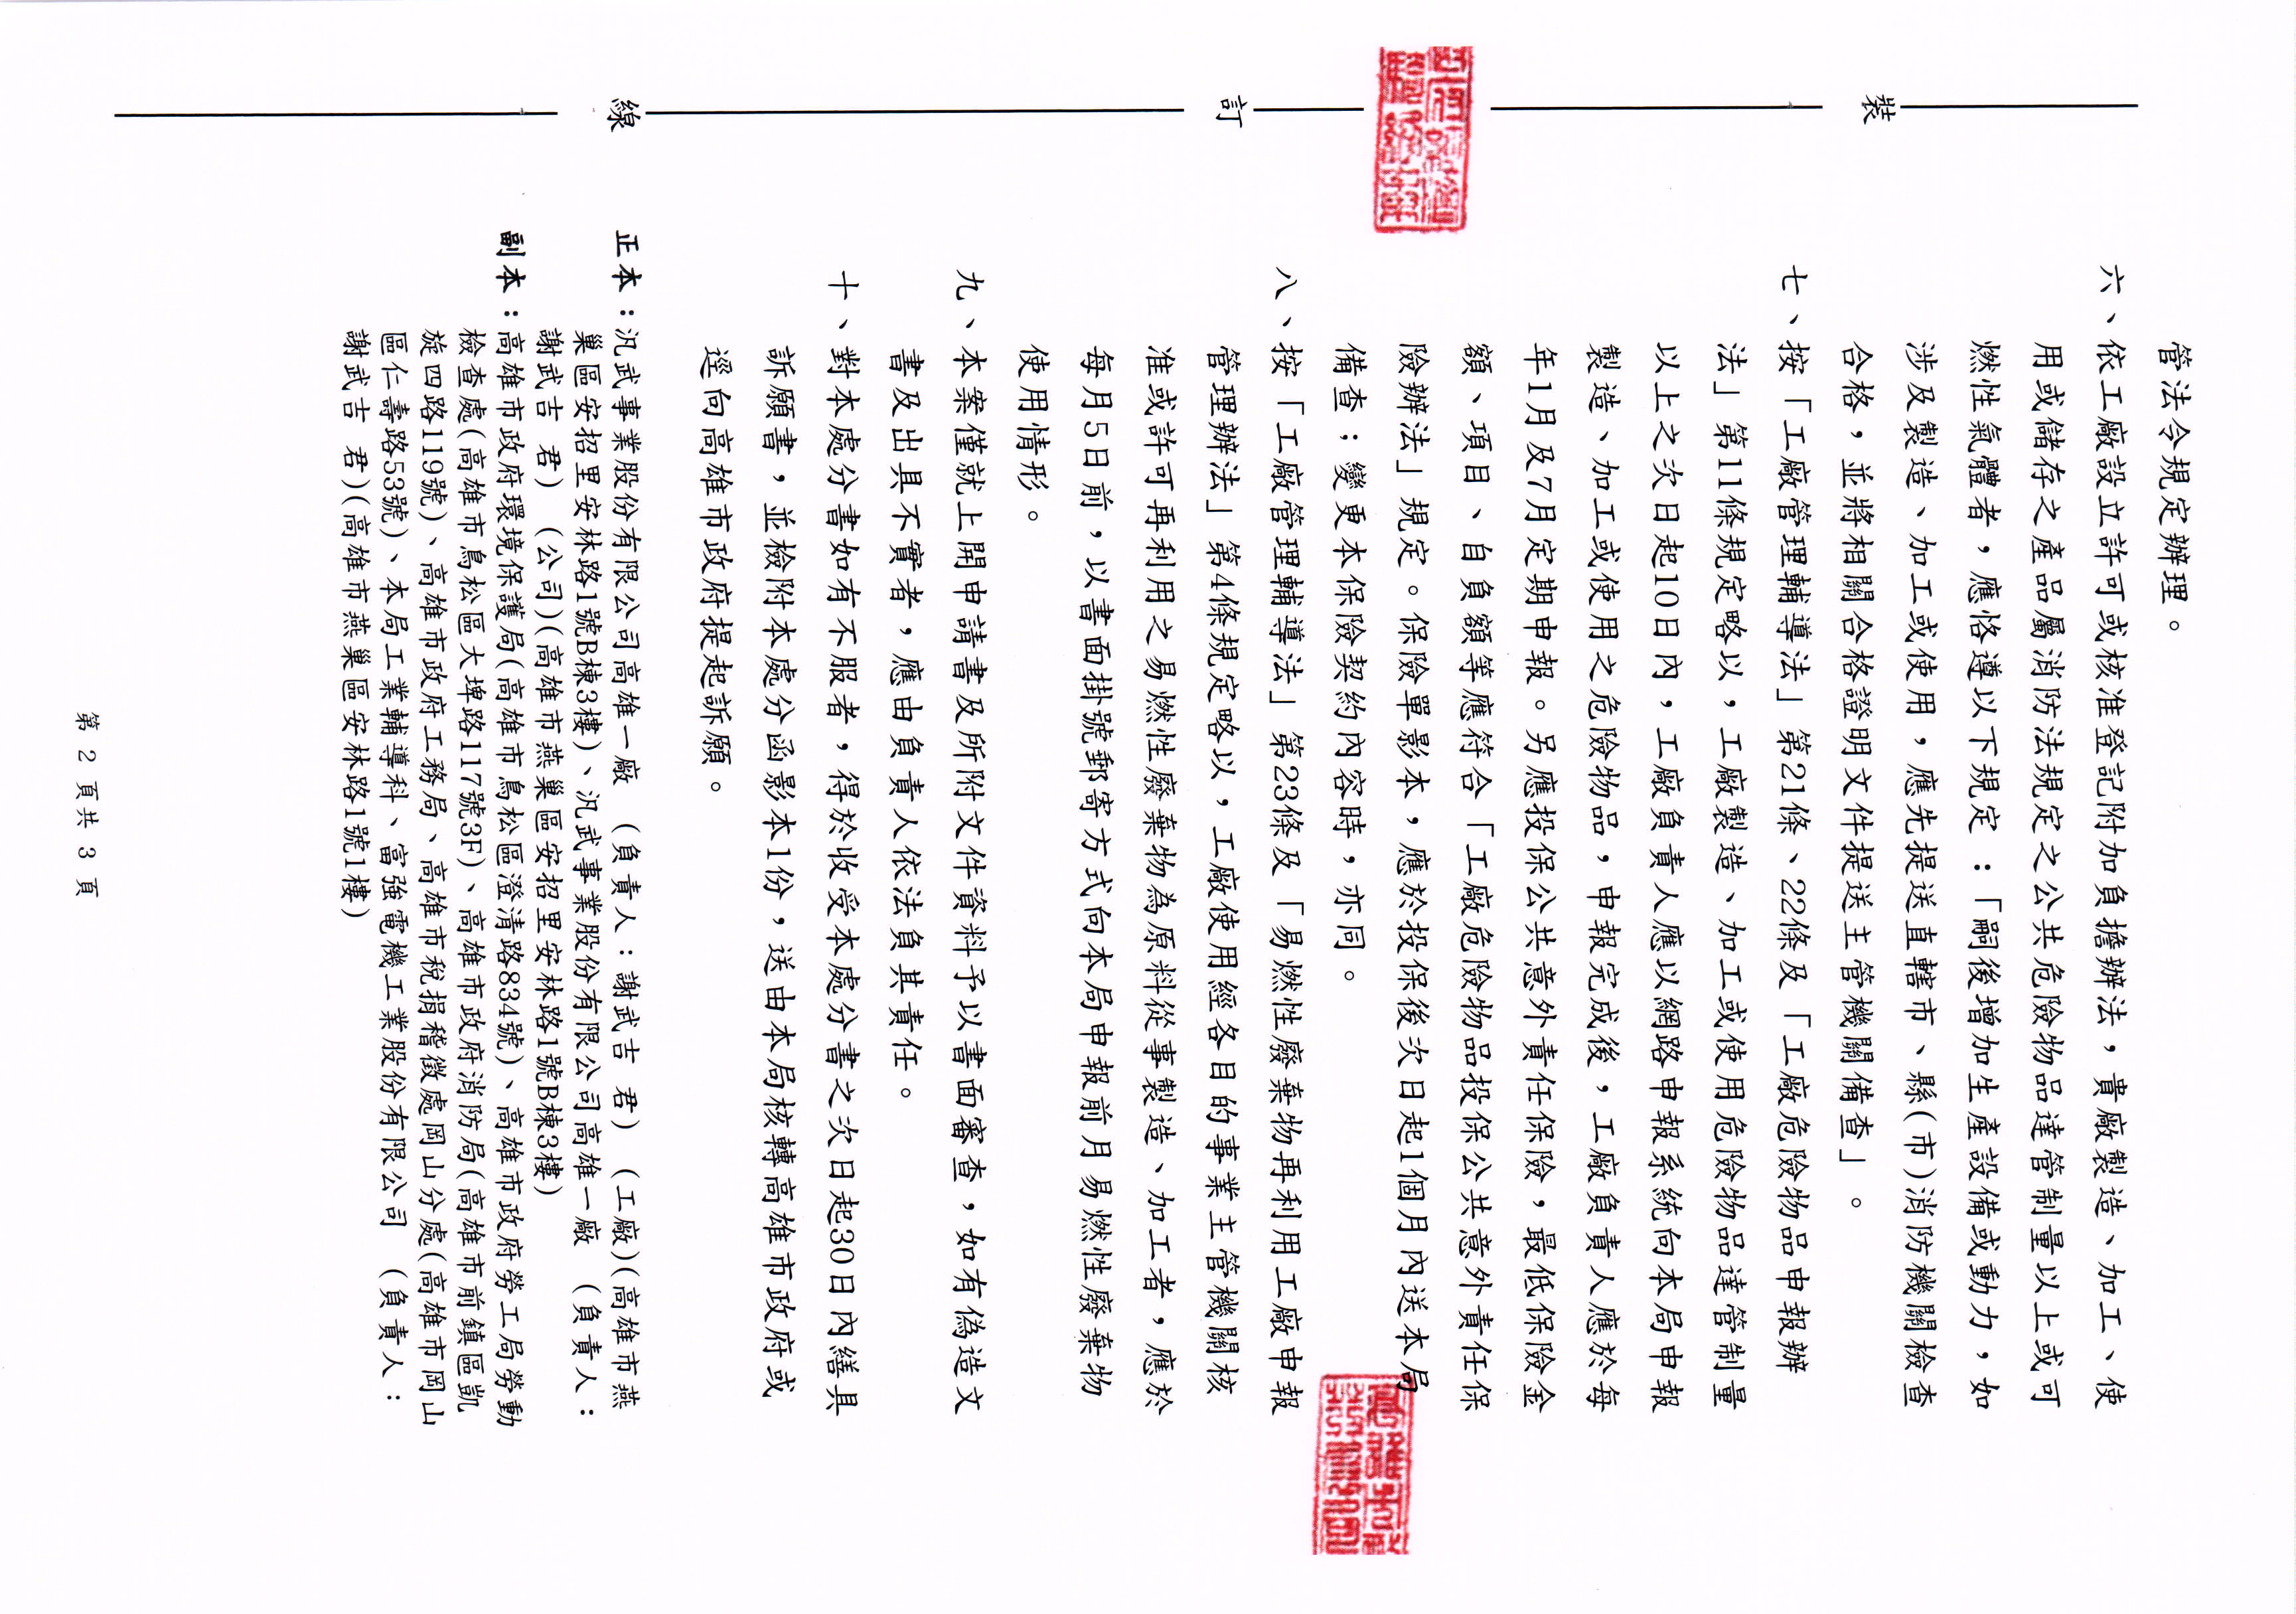 管法令規定辦理。
六、依工廠設立許可或核准登記附加負擔辦法，貴廠製造、加工、使
用或儲存之產品屬消防法規定之公共危險物品達管制量以上或可
燃性氣體者，應恪遵以下規定：「嗣後增加生產設備或動力，如
涉及製造、加工或使用，應先提送直轄市、縣(市)消防機關檢查
合格，並將相關合格證明文件提送主管機關備查」。
七、按「工廠管理輔導法」第21條、22條及「工廠危險物品申報辦
法」第11條規定略以，工廠製造、加工或使用危險物品達管制量
以上之次日起10日內，工廠負責人應以網路申報系統向本局申報
製造、加工或使用之危險物品，申報完成後，工廠負責人應於每
年1月及7月定期申報。另應投保公共意外責任保險，最低保險金
額、項目、自負額等應符合「工廠危險物品投保公共意外責任保
險辦法」規定。保險單影本，應於投保後次日起1個月內送本局
備查；變更本保險契約內容時，亦同。
八、按「工廠管理輔導法」第23條及「易燃性廢棄物再利用工廠申報
管理辦法」第4條規定略以，工廠使用經各目的事業主管機關核
准或許可再利用之易燃性廢棄物為原料從事製造、加工者，應於
每月5日前，以書面掛號郵寄方式向本局申報前月易燃性廢棄物
使用情形。
九、本案僅就上開申請書及所附文件資料予以書面審查，如有偽造文
書及出具不實者，應由負責人依法負其責任。
十、對本處分書如有不服者，得於收受本處分書之次日起30日內繕具
訴願書，並檢附本處分函影本1份，送由本局核轉高雄市政府或
逕向高雄市政府提起訴願。
正本：汎武事業股份有限公司高雄一廠 (負責人：謝武吉 君) (工廠)(高雄市燕
巢區安招里安林路1號B棟3樓)、汎武事業股份有限公司高雄一廠 (負責人：
謝武吉 君) (公司)(高雄市燕巢區安招里安林路1號B棟3樓)
副本：高雄市政府環境保護局(高雄市鳥松區澄清路834號)、高雄市政府勞工局勞動
檢查處(高雄市鳥松區大埤路117號3F)、高雄市政府消防局(高雄市前鎮區凱
旋四路119號)、高雄市政府工務局、高雄市稅捐稽徵處岡山分處(高雄市岡山
區仁壽路53號)、本局工業輔導科、富強電機工業股份有限公司 (負責人：
謝武吉 君)(高雄市燕巢區安林路1號1樓)
第 2 頁共 3 頁
裝
訂
線